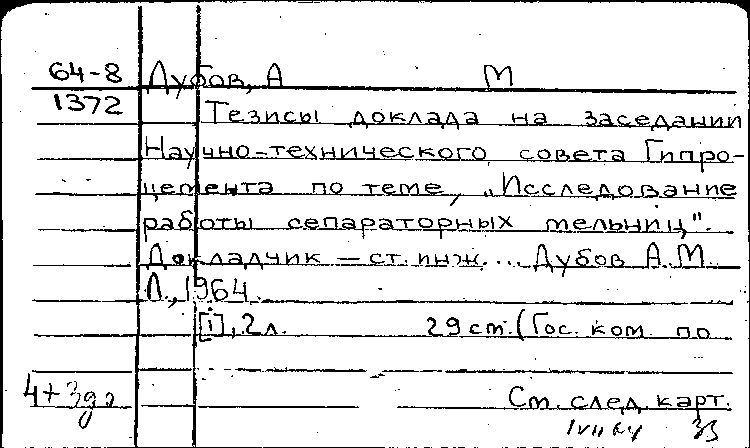 64-8 Дубов, А М
1372 Тезисы доклада на заседании
Научно-технического совета Гипро-
цемента по теме, „Исследование
работы сепараторных мельниц".
Докладчик — ст. инж. ... Дубов А.М.
Л., 1964.
[i], 2 л. 29 см. (Гос. ком. по
См. след. карт.